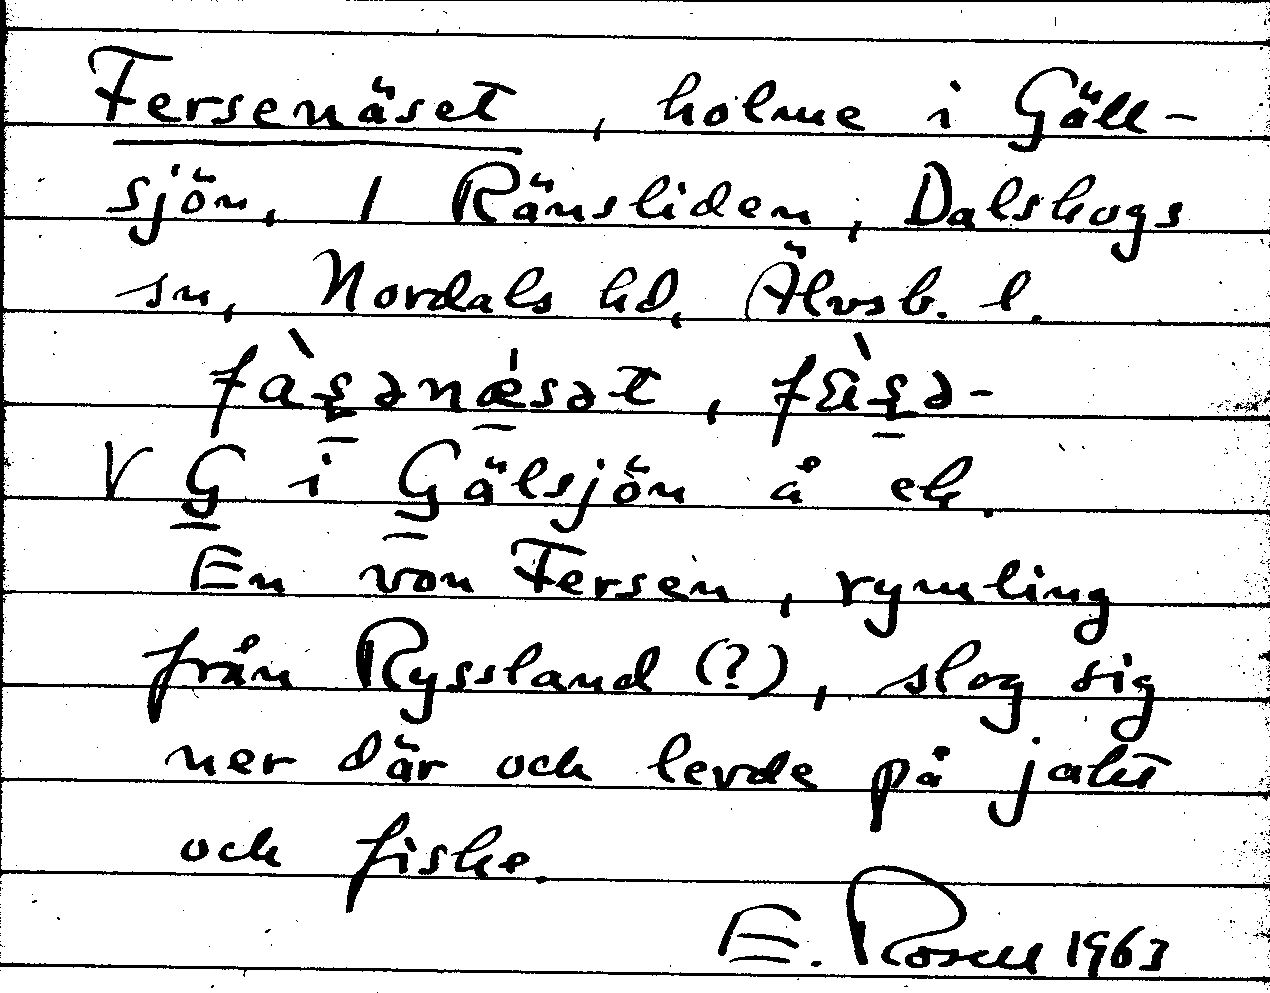 Fersenäset, holme i Gäll-
sjön, 1 Ränsliden, Dalskogs
sn, Nordals hd, Älvsb. l.
fàʂənǽsət, fæ̀ʂə-
V G i Gälsjön å ek.
En von Fersen, rymling
från Ryssland (?), slog sig
ner där och levde på jakt
och fiske.
E. Rosell 1963